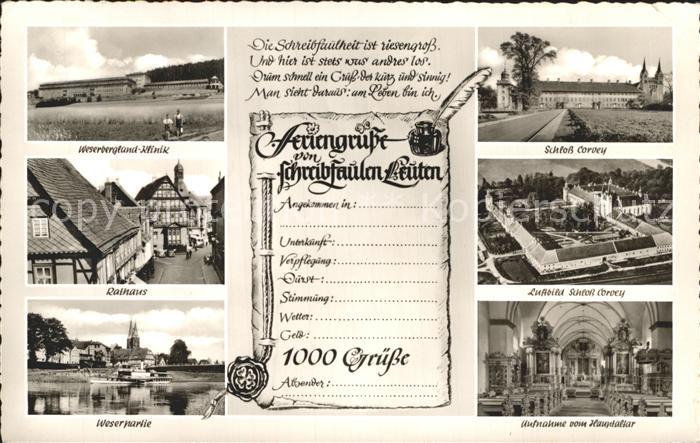 Die Schreibfaulheit ist riesengroß.
Und hier ist stets was andres los.
Drum schnell ein Gruß, der kurz und sinnig!
Man sieht daraus: am Leben bin ich.
Feriengrüße
von
schreibfaulen Leuten
Angekommen in:
Unterkunft:
Verpflegung:
Durst:
Stimmung:
Wetter:
Geld:
1000 Grüße
Absender:
Weserbergland-Klinik
Rathaus
Weserpartie
Schloß Corvey
Luftbild Schloß Corvey
Aufnahme vom Hauptaltar